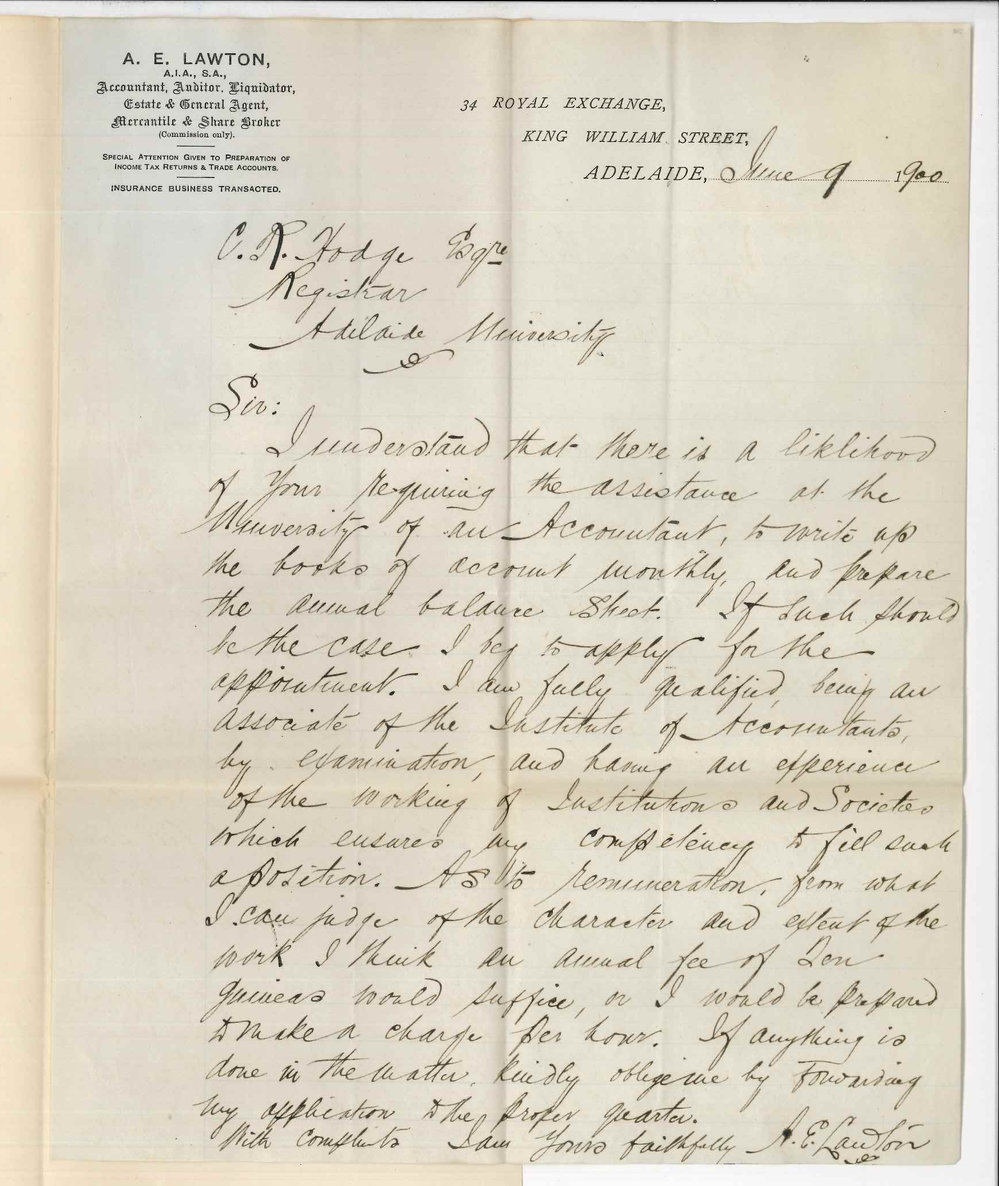 A. E. LAWTON,
A.I.A., S.A.,
Accountant, Auditor, Liquidator,
Estate & General Agent,
Mercantile & Share Broker
(Commission only).
SPECIAL ATTENTION GIVEN TO PREPARATION OF
INCOME TAX RETURNS & TRADE ACCOUNTS.
INSURANCE BUSINESS TRANSACTED.
34 ROYAL EXCHANGE,
KING WILLIAM STREET,
ADELAIDE, June 9 1900
C. R. Hodge Esqre
Registrar
Adelaide University.
Sir:
I understand that there is a liklihood
of Your requiring the assistance at the
University of an Accountant, to write up
the books of account monthly, and prepare
the annual balance Sheet. If such should
be the case I beg to apply for the
appointment. I am fully qualified, being an
associate of the Institute of Accountants,
by examination, and having an experience
of the working of Institutions and Societies
which ensures my competency to fill such
a position. As to remuneration, from what
I can judge of the character and extent of the
work I think an annual fee of Ten
guineas would suffice, or I would be prepared
to make a charge per hour. If anything is
done in the matter, kindly oblige me by forwarding
my application to the proper quarter.
With complmts I am Yours faithfully A. E. Lawton